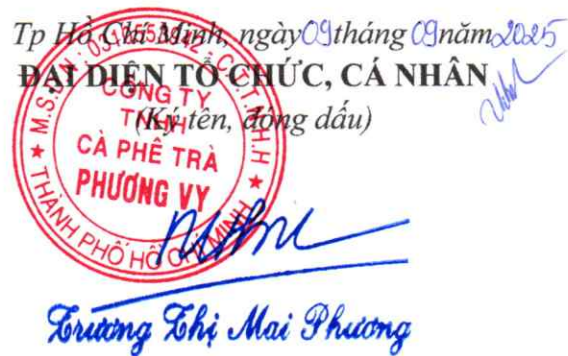 Tp Hồ Chí Minh, ngày 09 tháng 09 năm 2025
ĐẠI DIỆN TỔ CHỨC, CÁ NHÂN
(Ký tên, đóng dấu)
CÔNG TY
TNHH
CÀ PHÊ TRÀ
PHƯƠNG VY
C.T.T.N.H.H
THÀNH PHỐ HỒ CHÍ MINH
Trương Thị Mai Phương